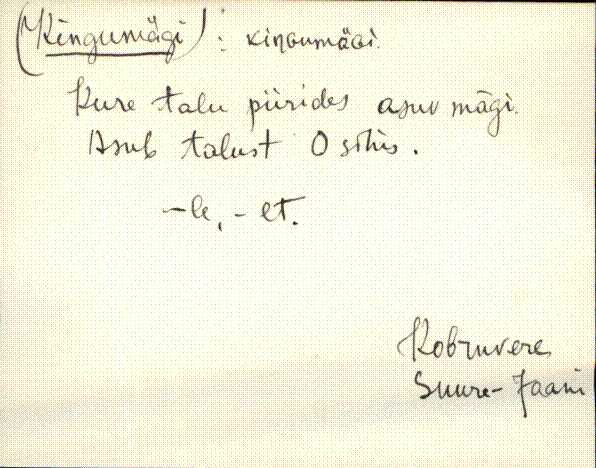 (Kingumägi): kinGumäGi.
Kure talu piirides asuv mägi.
Asub talust O sihis.
-le, -et.
Kobruvere
Suure-Jaani